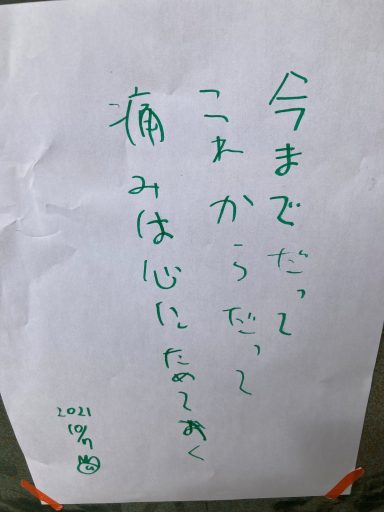 今までだって
これからだって
痛みは心にためておく
2021
10/7